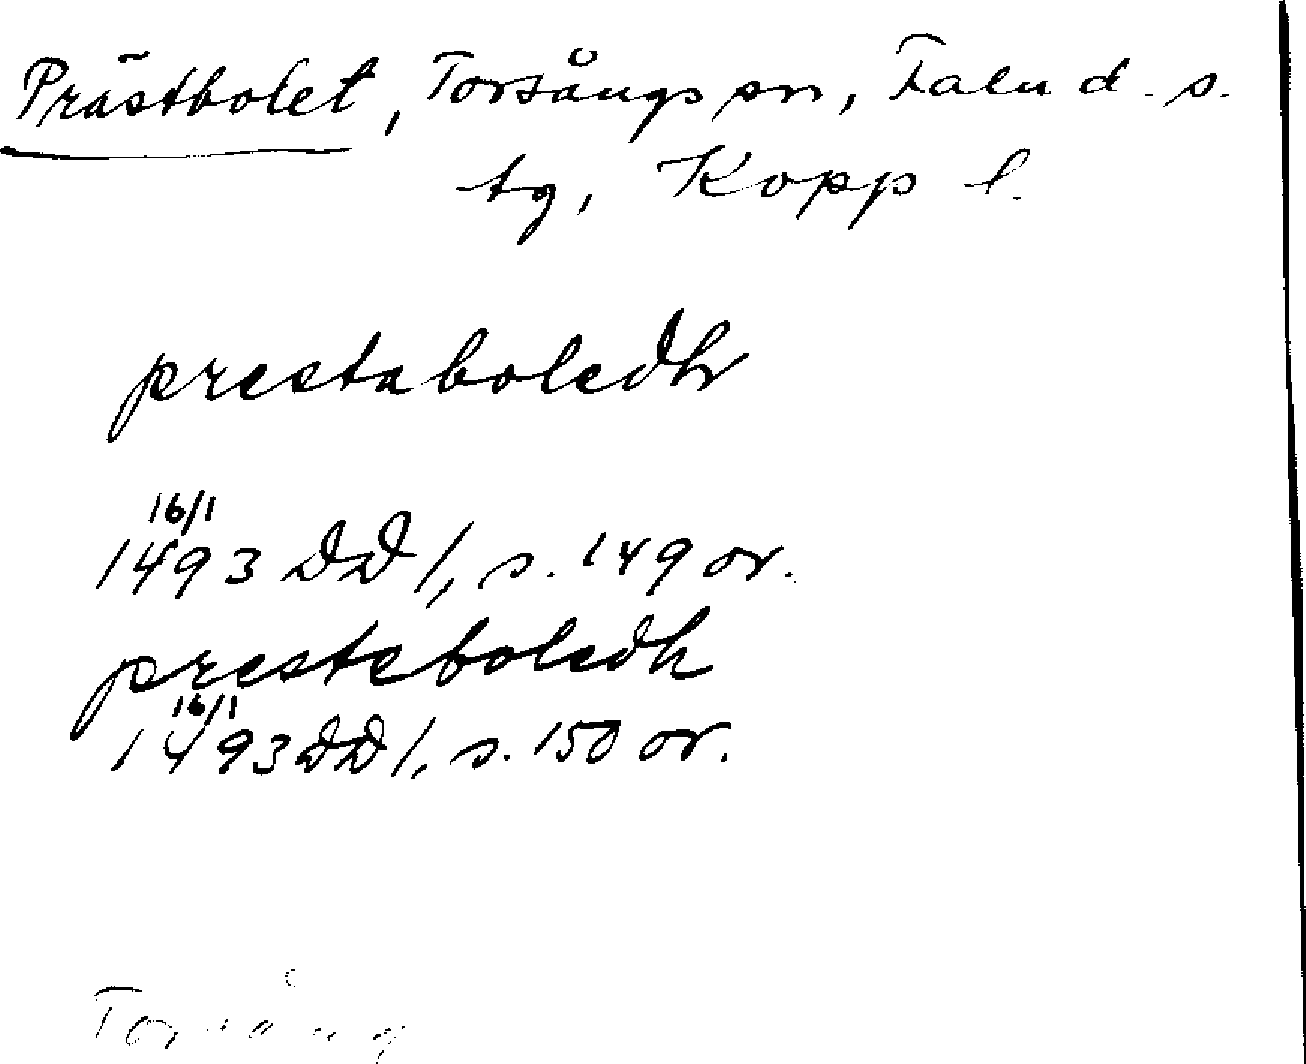 Prästbolet, Torsångs sn, Falu d. s.
tg, Kopp l.
prestaboledh
16/1
1493 DD 1, s. 149 or.
presteboledh
16/1
1493 DD 1, s. 150 or.
Torsång